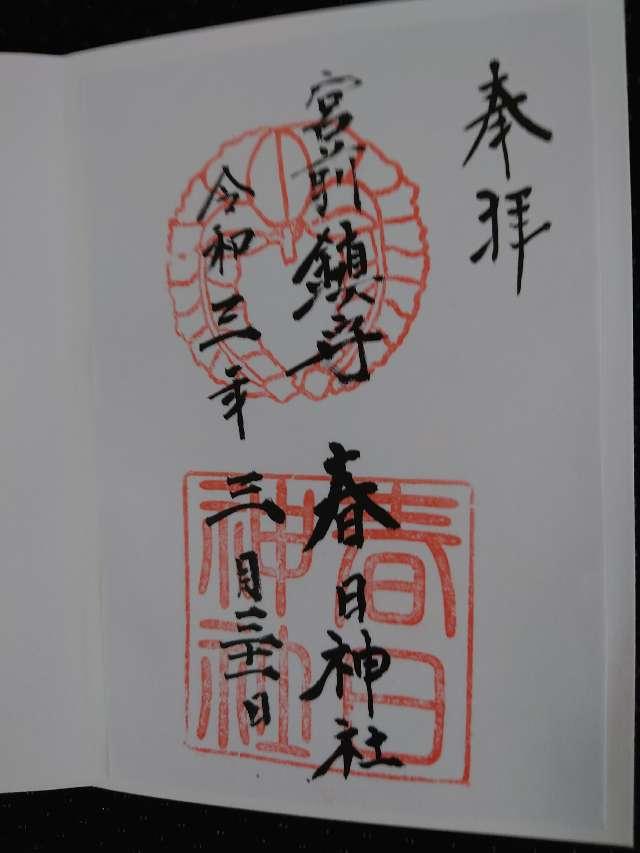 奉拝
宮前鎮守
春日神社
令和三年三月三十一日
春日
神社